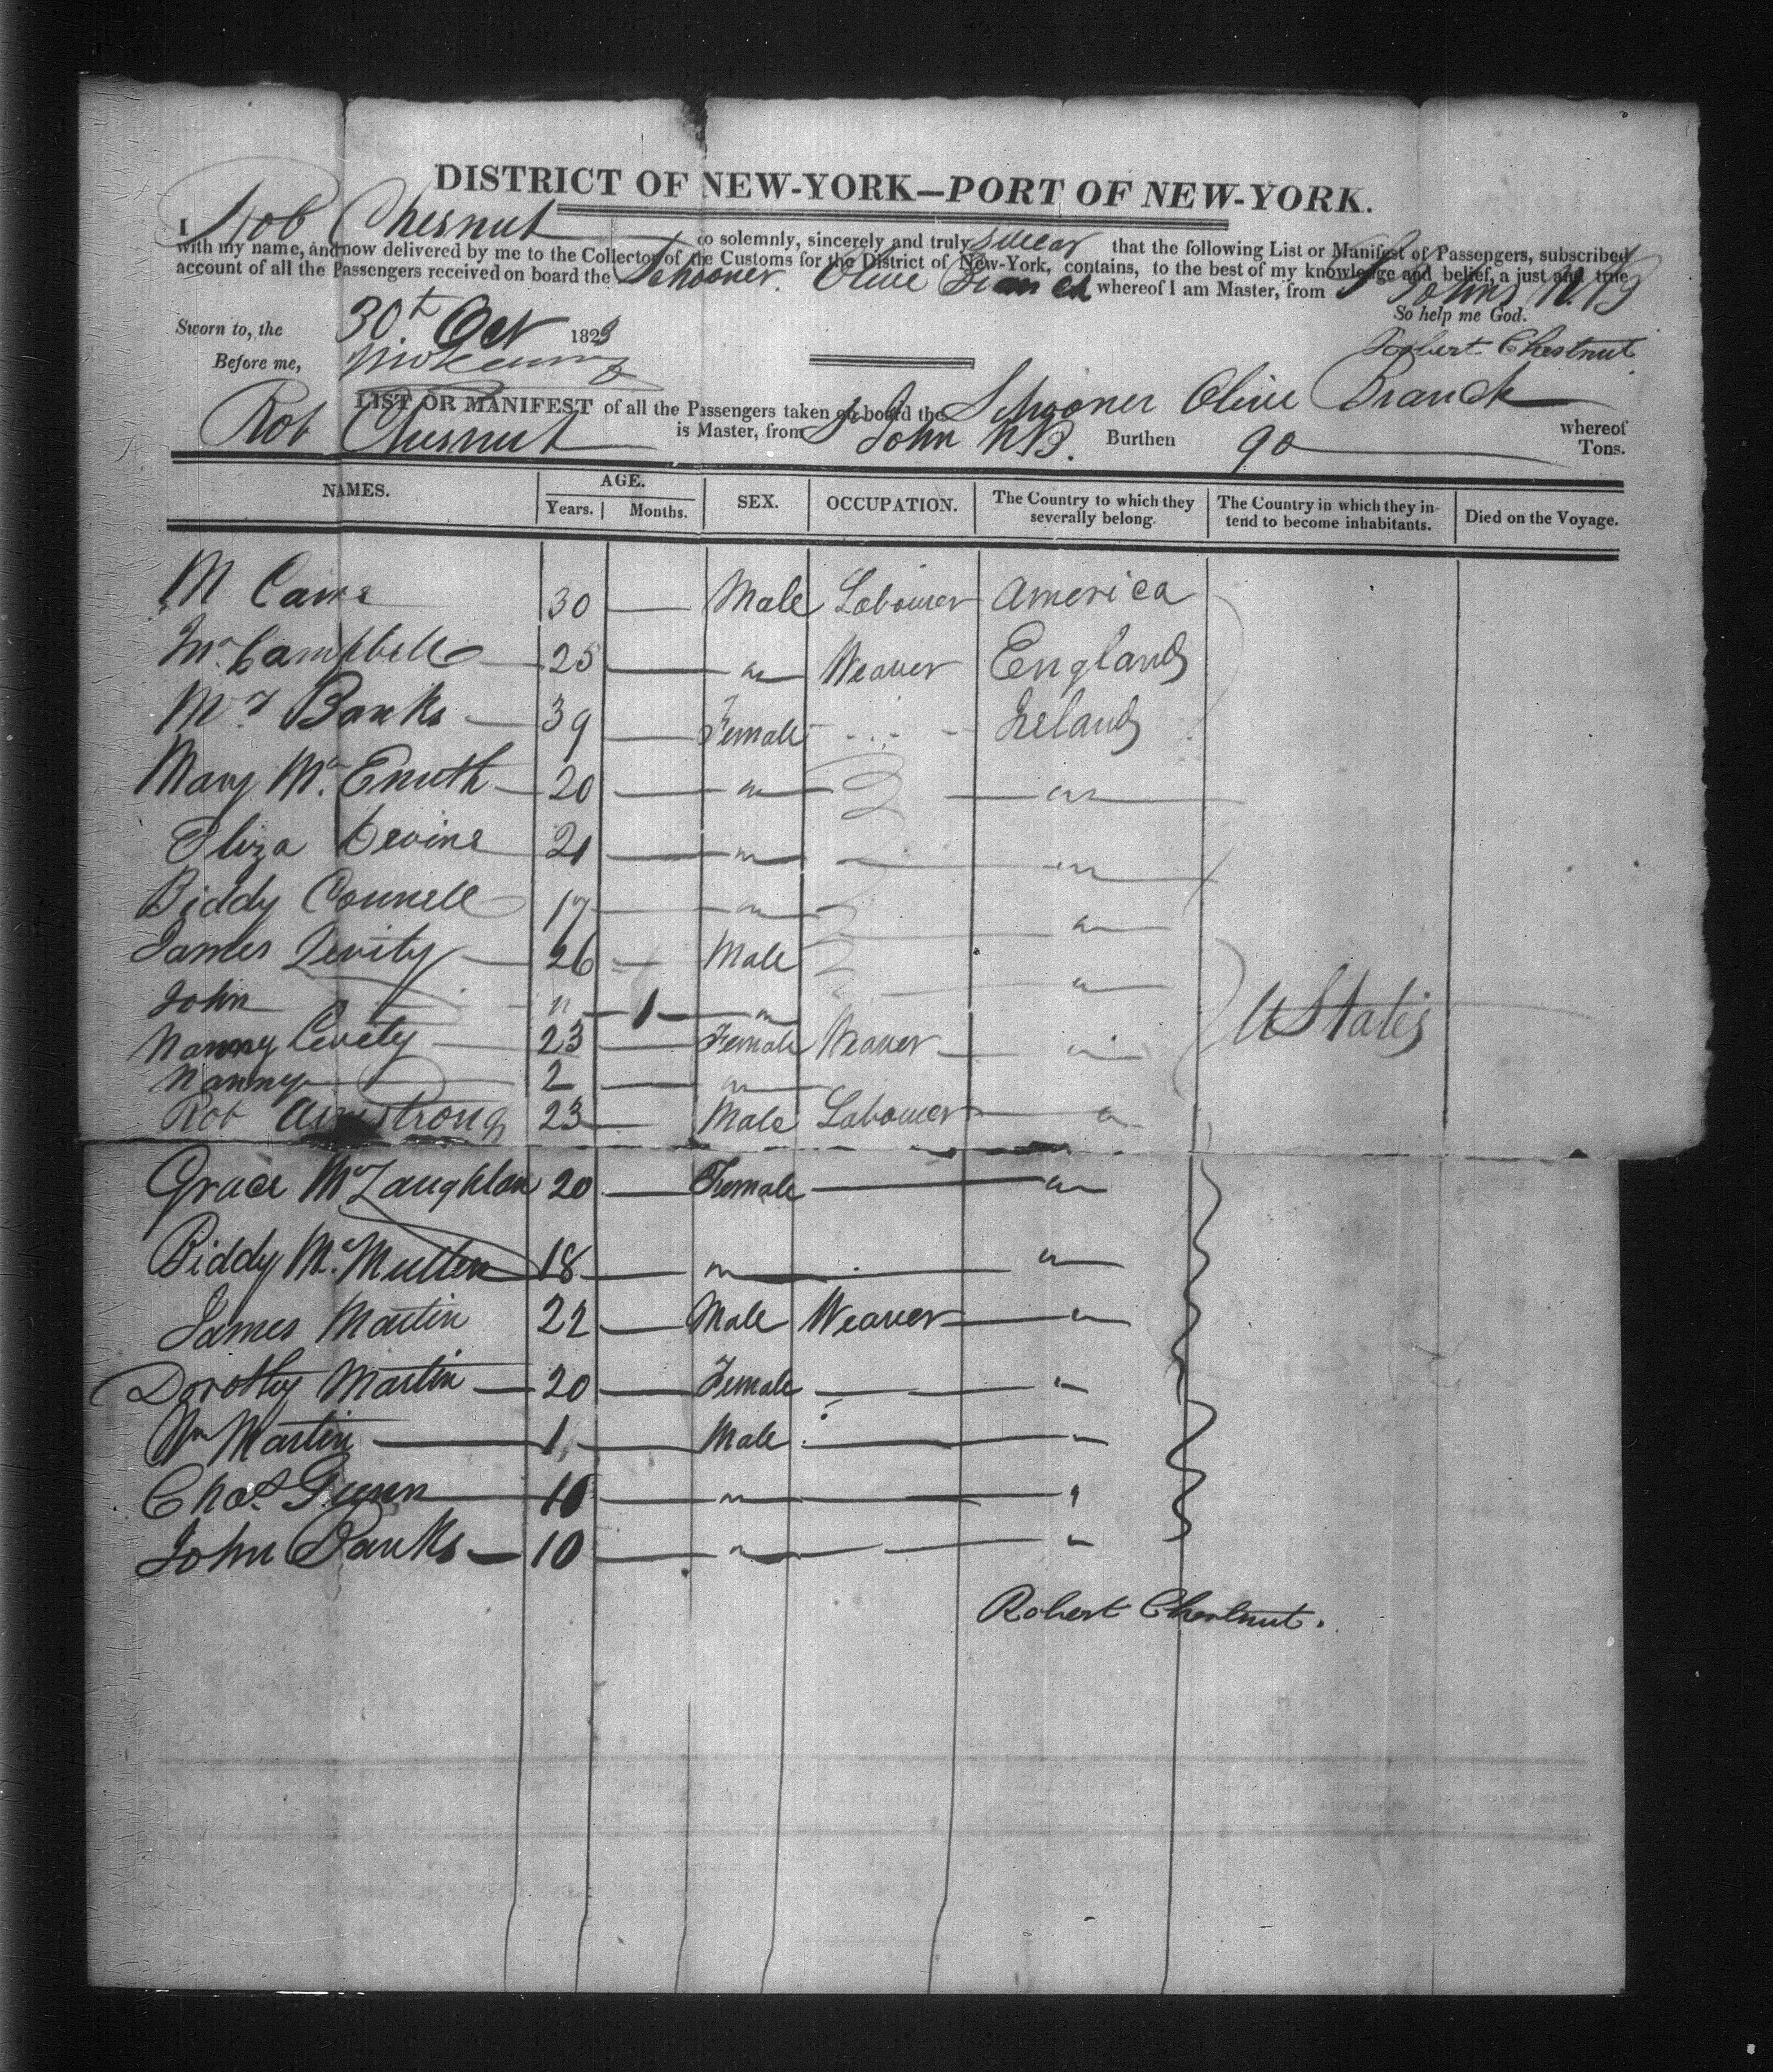 DISTRICT OF NEW-YORK—PORT OF NEW-YORK.
I Rob Chesnut do solemnly, sincerely and truly swear that the following List or Manifest of Passengers, subscribed
with my name, and now delivered by me to the Collector of the Customs for the District of New-York, contains, to the best of my knowledge and belief, a just and true
account of all the Passengers received on board the Schooner Olive Branch whereof I am Master, from St Johns N.B
So help me God.
Sworn to, the 30th Oct 1823
Robert Chestnut
Before me,
LIST OR MANIFEST of all the Passengers taken on board the Schooner Olive Branch whereof
Rob Chesnut is Master, from St John N.B. Burthen 90 Tons.
NAMES. AGE. SEX. OCCUPATION. The Country to which they severally belong. The Country in which they intend to become inhabitants. Died on the Voyage.
Years. Months.
M 30 — Male Labourer America
Mr. Campbell 25 — " Weaver England
Mrs Banks 39 — Female Ireland
Mary Mc 20 — " "
Eliza Devine 21 — " "
Biddy Connell 17 — " "
James Levity 26 — Male "
John " 1 "
Nanny Levety 23 — Female Weaver "
U States
Nanny 2 — "
Rob Armstrong 23 — Male Labourer "
Grace McLaughlan 20 — Female — "
Biddy Mc.Mullen 18 — " "
James Martin 22 — Male Weaver "
Dorothy Martin 20 — Female — "
Wm Martin 1 — Male — "
Chas. 10 — " "
John Banks 10 — " "
Robert Chestnut.